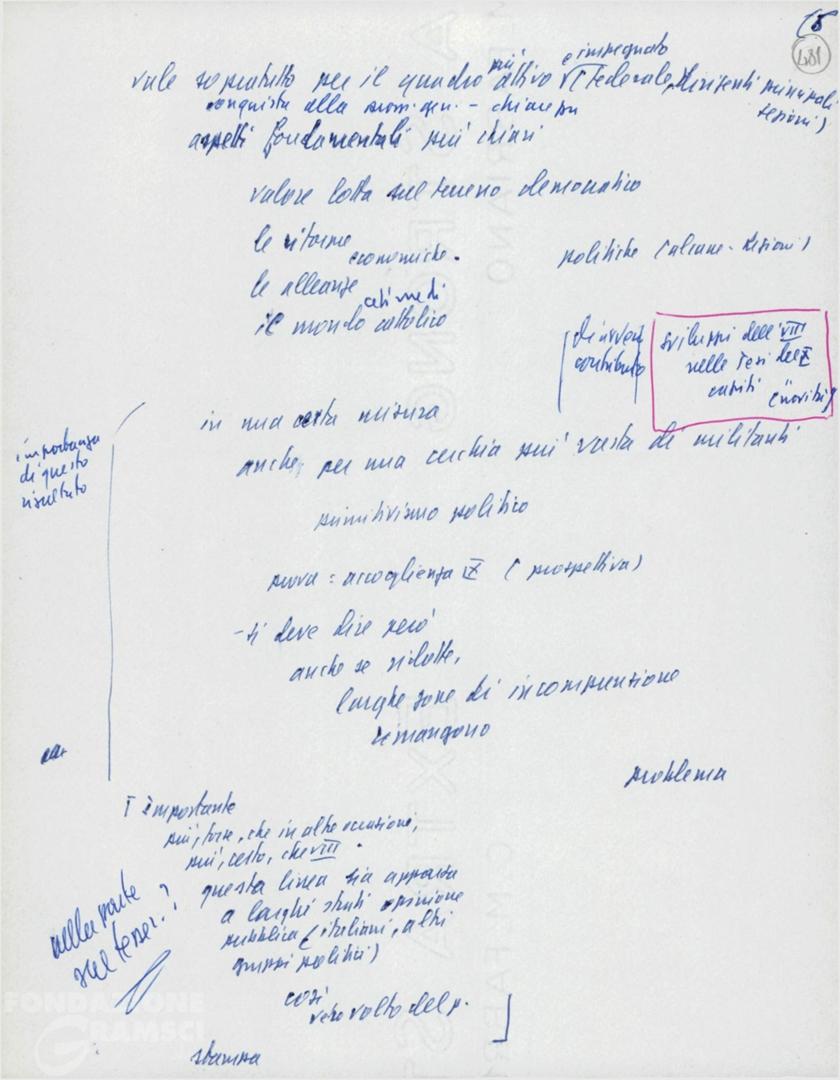 181
più e impegnato
vale sopratutto per il quadro attivo federale, dirigenti principali
conquista alla - chiare più sezioni)
aspetti fondamentali più chiari
valore lotta sul terreno democratico
le riforme
economiche. politiche (alcune - sezioni)
le alleanze
ceti medi
il mondo cattolico
contributo
sviluppi dell'VIII
nelle Tesi del X
(novità)
in una certa misura
anche, per una cerchia più vasta di militanti
importanza
di questo
risultato
primitivismo politico
prova: accoglienza IX (prospettiva)
- si deve dire però
anche se ridotte,
larghe zone di incomprensione
rimangono
problema
[ importante
più, forse, che in altre occasione,
più, certo, che VIII.
questa linea sia apparsa
a larghi strati opinione
pubblica (italiani, altri
gruppi politici)
nella parte
sul tesser.?
così
vero volto del p. ]
stampa
FONDAZIONE
GRAMSCI